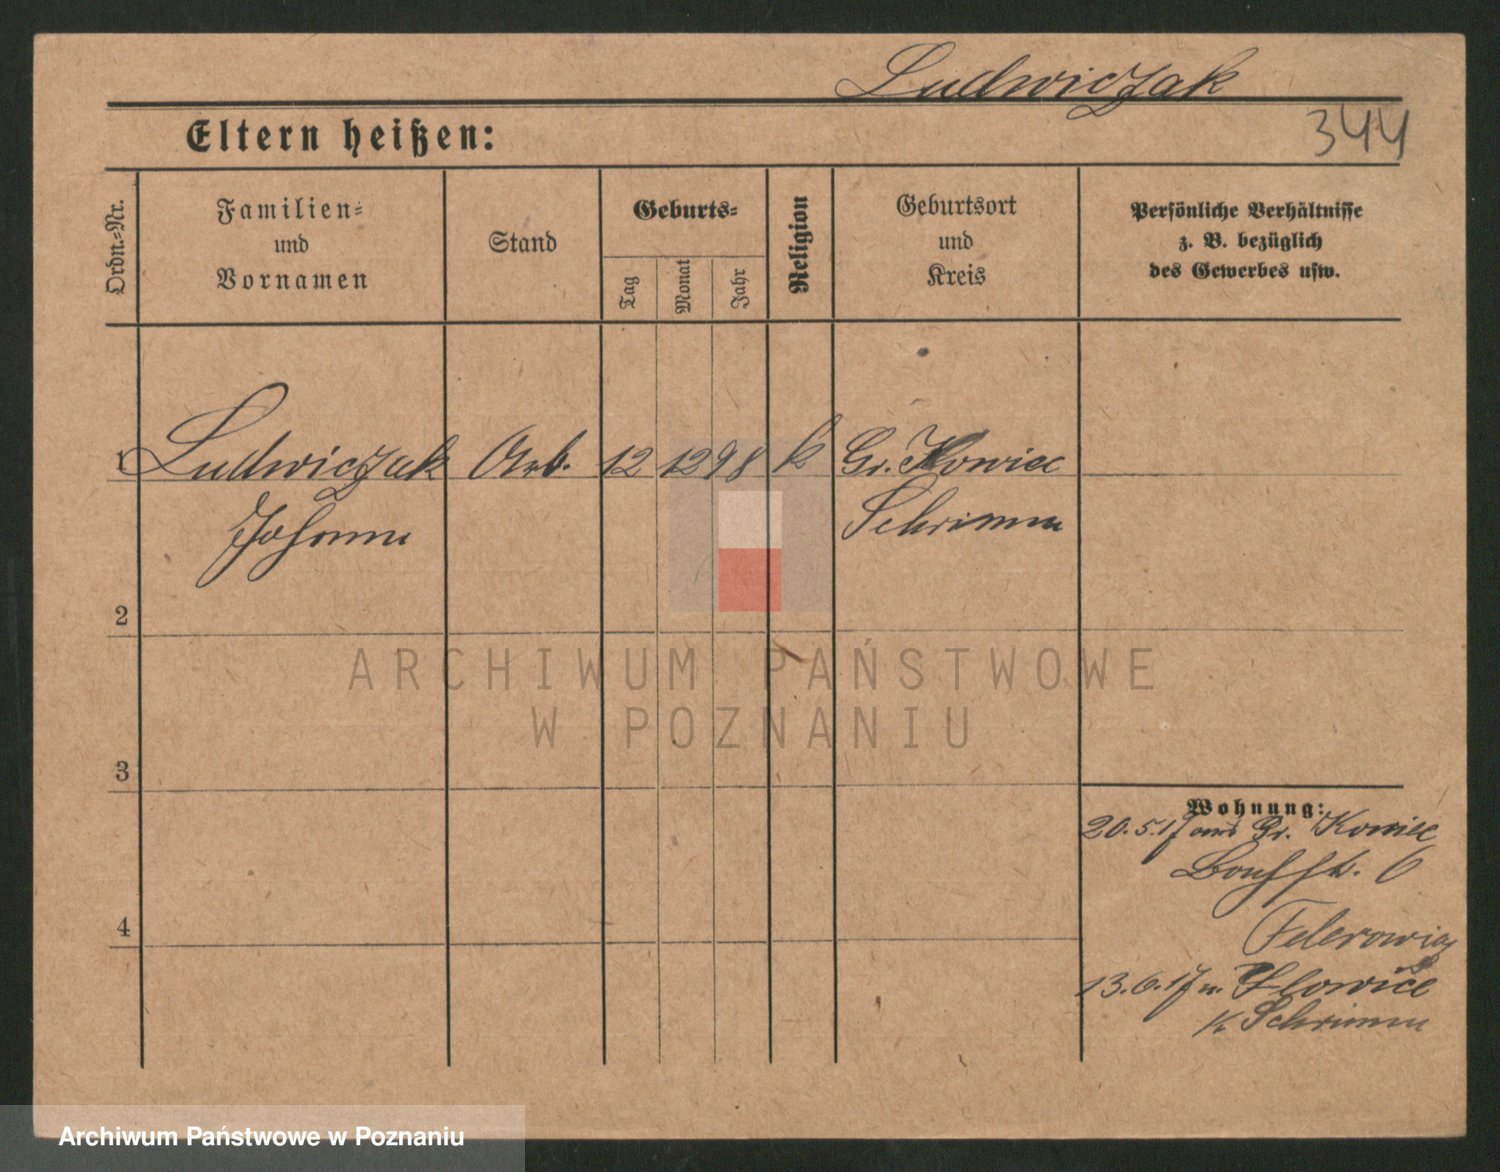 Ludwiczak
344
Eltern heißen:
Ordn.-Nr.
Familien- und Vornamen
Stand
Geburts-
Tag
Monat
Jahr
Religion
Geburtsort und Kreis
Persönliche Verhältnisse
z. B. bezüglich
des Gewerbes usw.
1 Ludwiczak Arb. 12 12 98 k Gr.
Johann Schrimm
2
ARCHIWUM PAŃSTWOWE
W POZNANIU
3
Wohnung:
20.5.17 aus Gr.
6
4
13.6.17 n.
K Schrimm
Archiwum Państwowe w Poznaniu